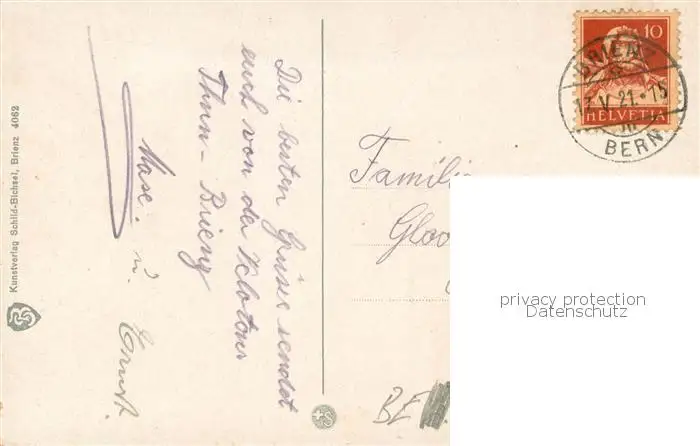 Die besten Grüsse sendet
euch von der Velotour
Thun - Brienz
Max. u. Ernst.
Kunstverlag Schild-Bichsel, Brienz 4062
10
HELVETIA
BRIENZ
17.V.21.
BERN
Famili
Gloo
BE
privacy protection
Datenschutz